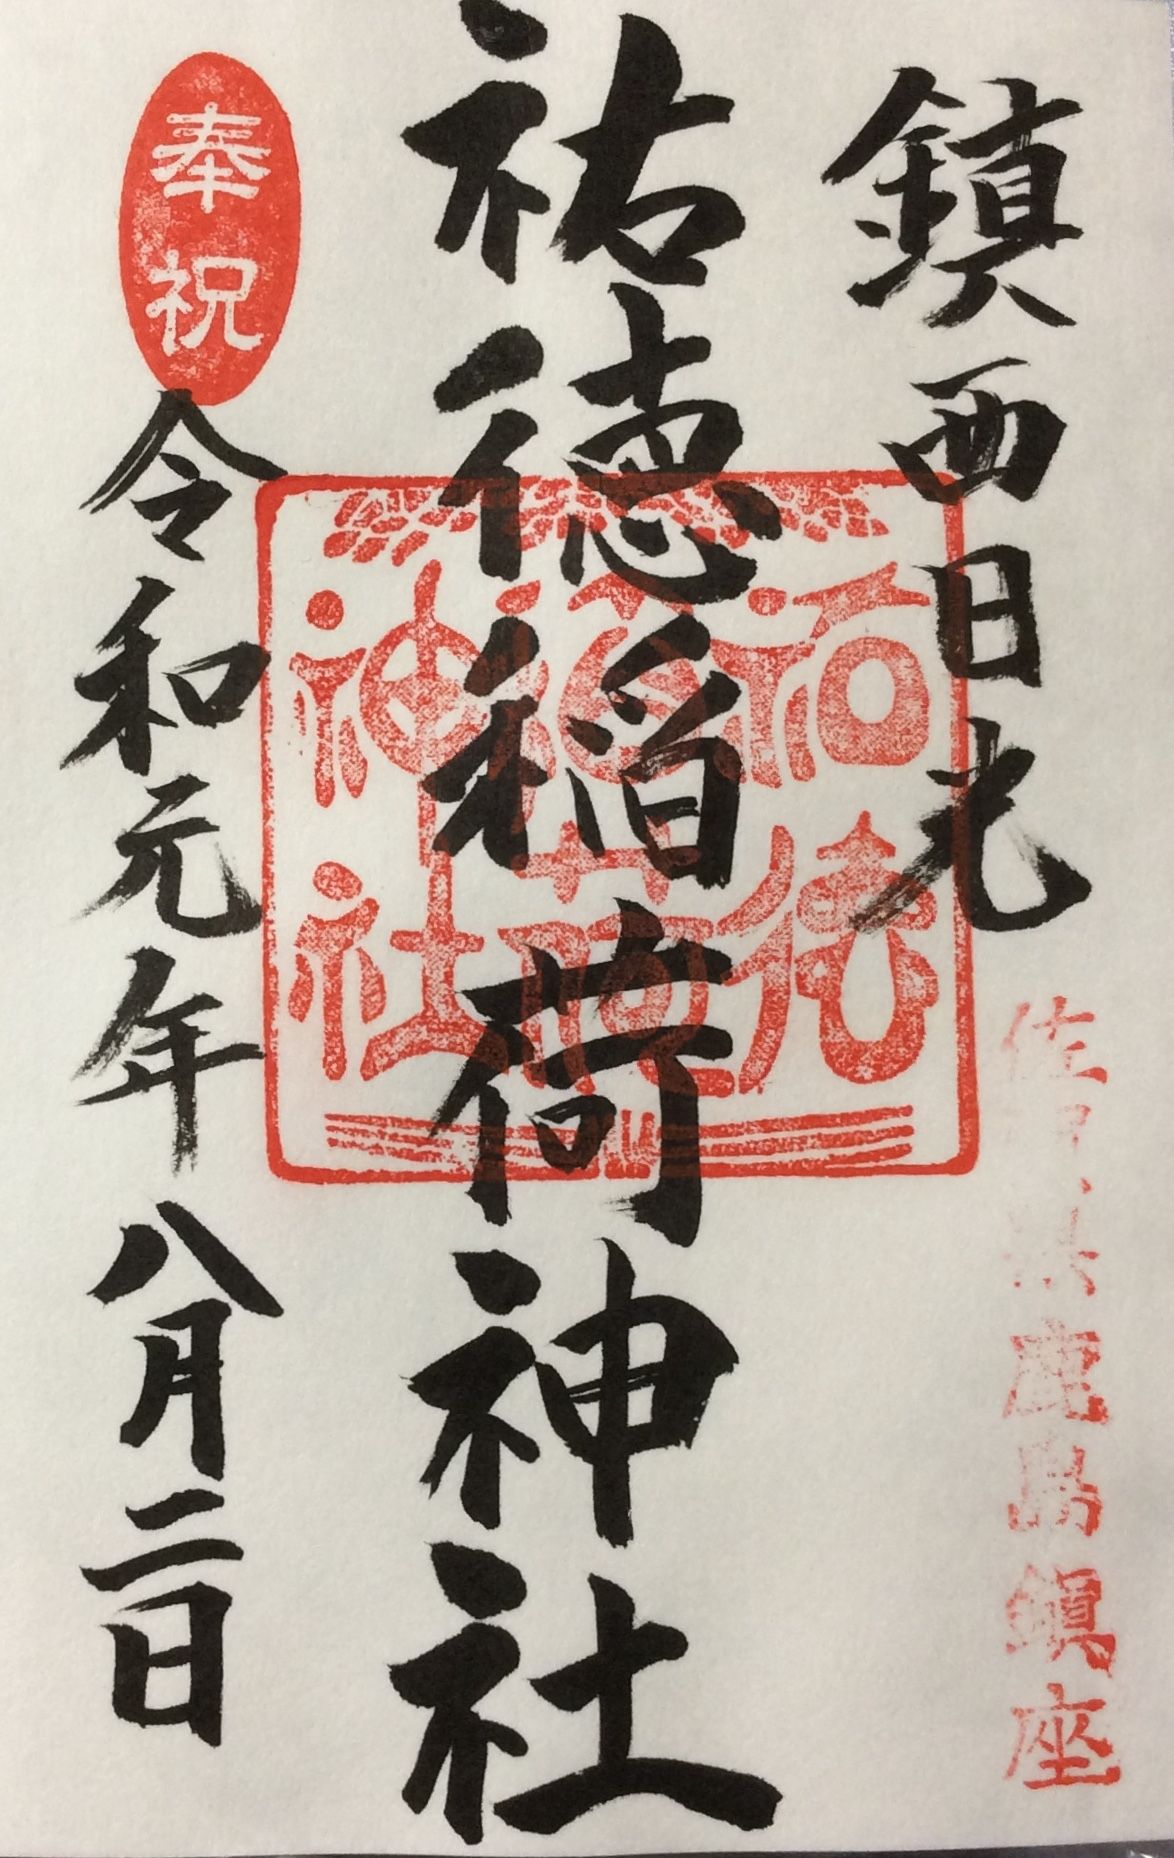 鎮西日光
佐賀県鹿島鎮座
祐徳稲荷神社
祐徳
稲荷
神社
奉祝
令和元年八月二日